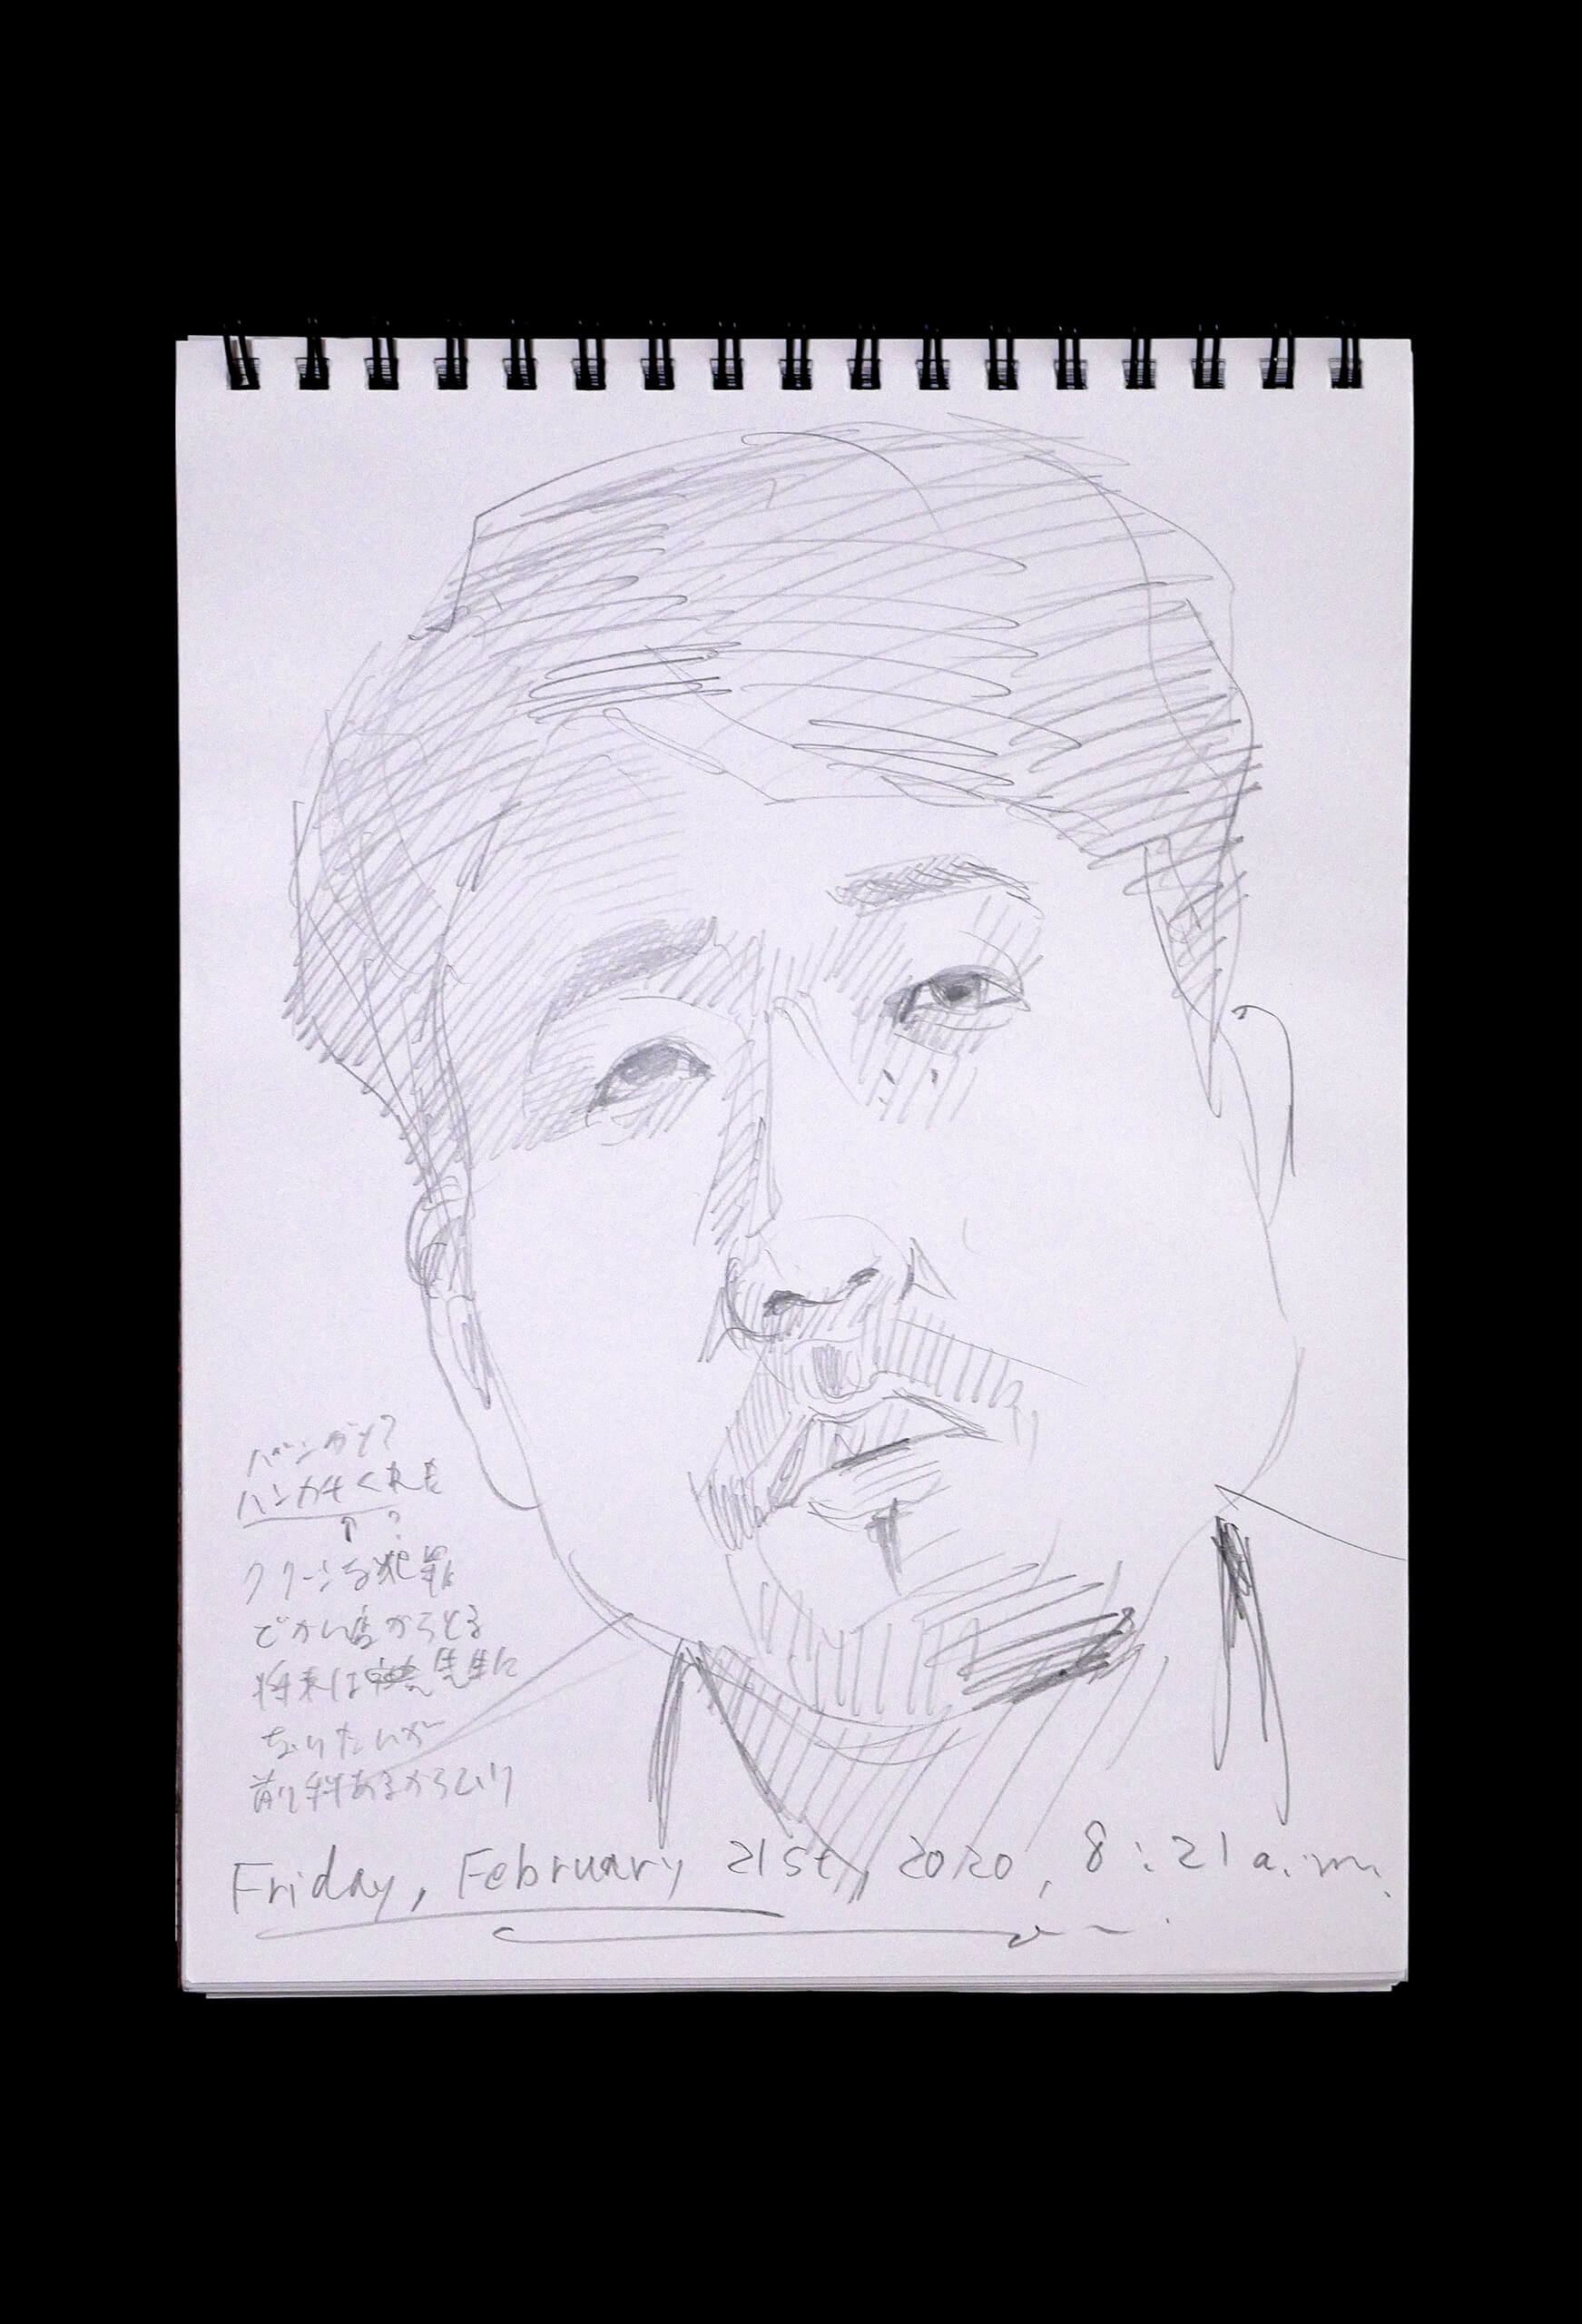 ハンカチくれた
↑ ?
クリーンな犯罪
でかい島からとる
将来は先生に
なりたいが
前科あるからムリ
Friday, February 21st, 2020, 8:21 a.m.